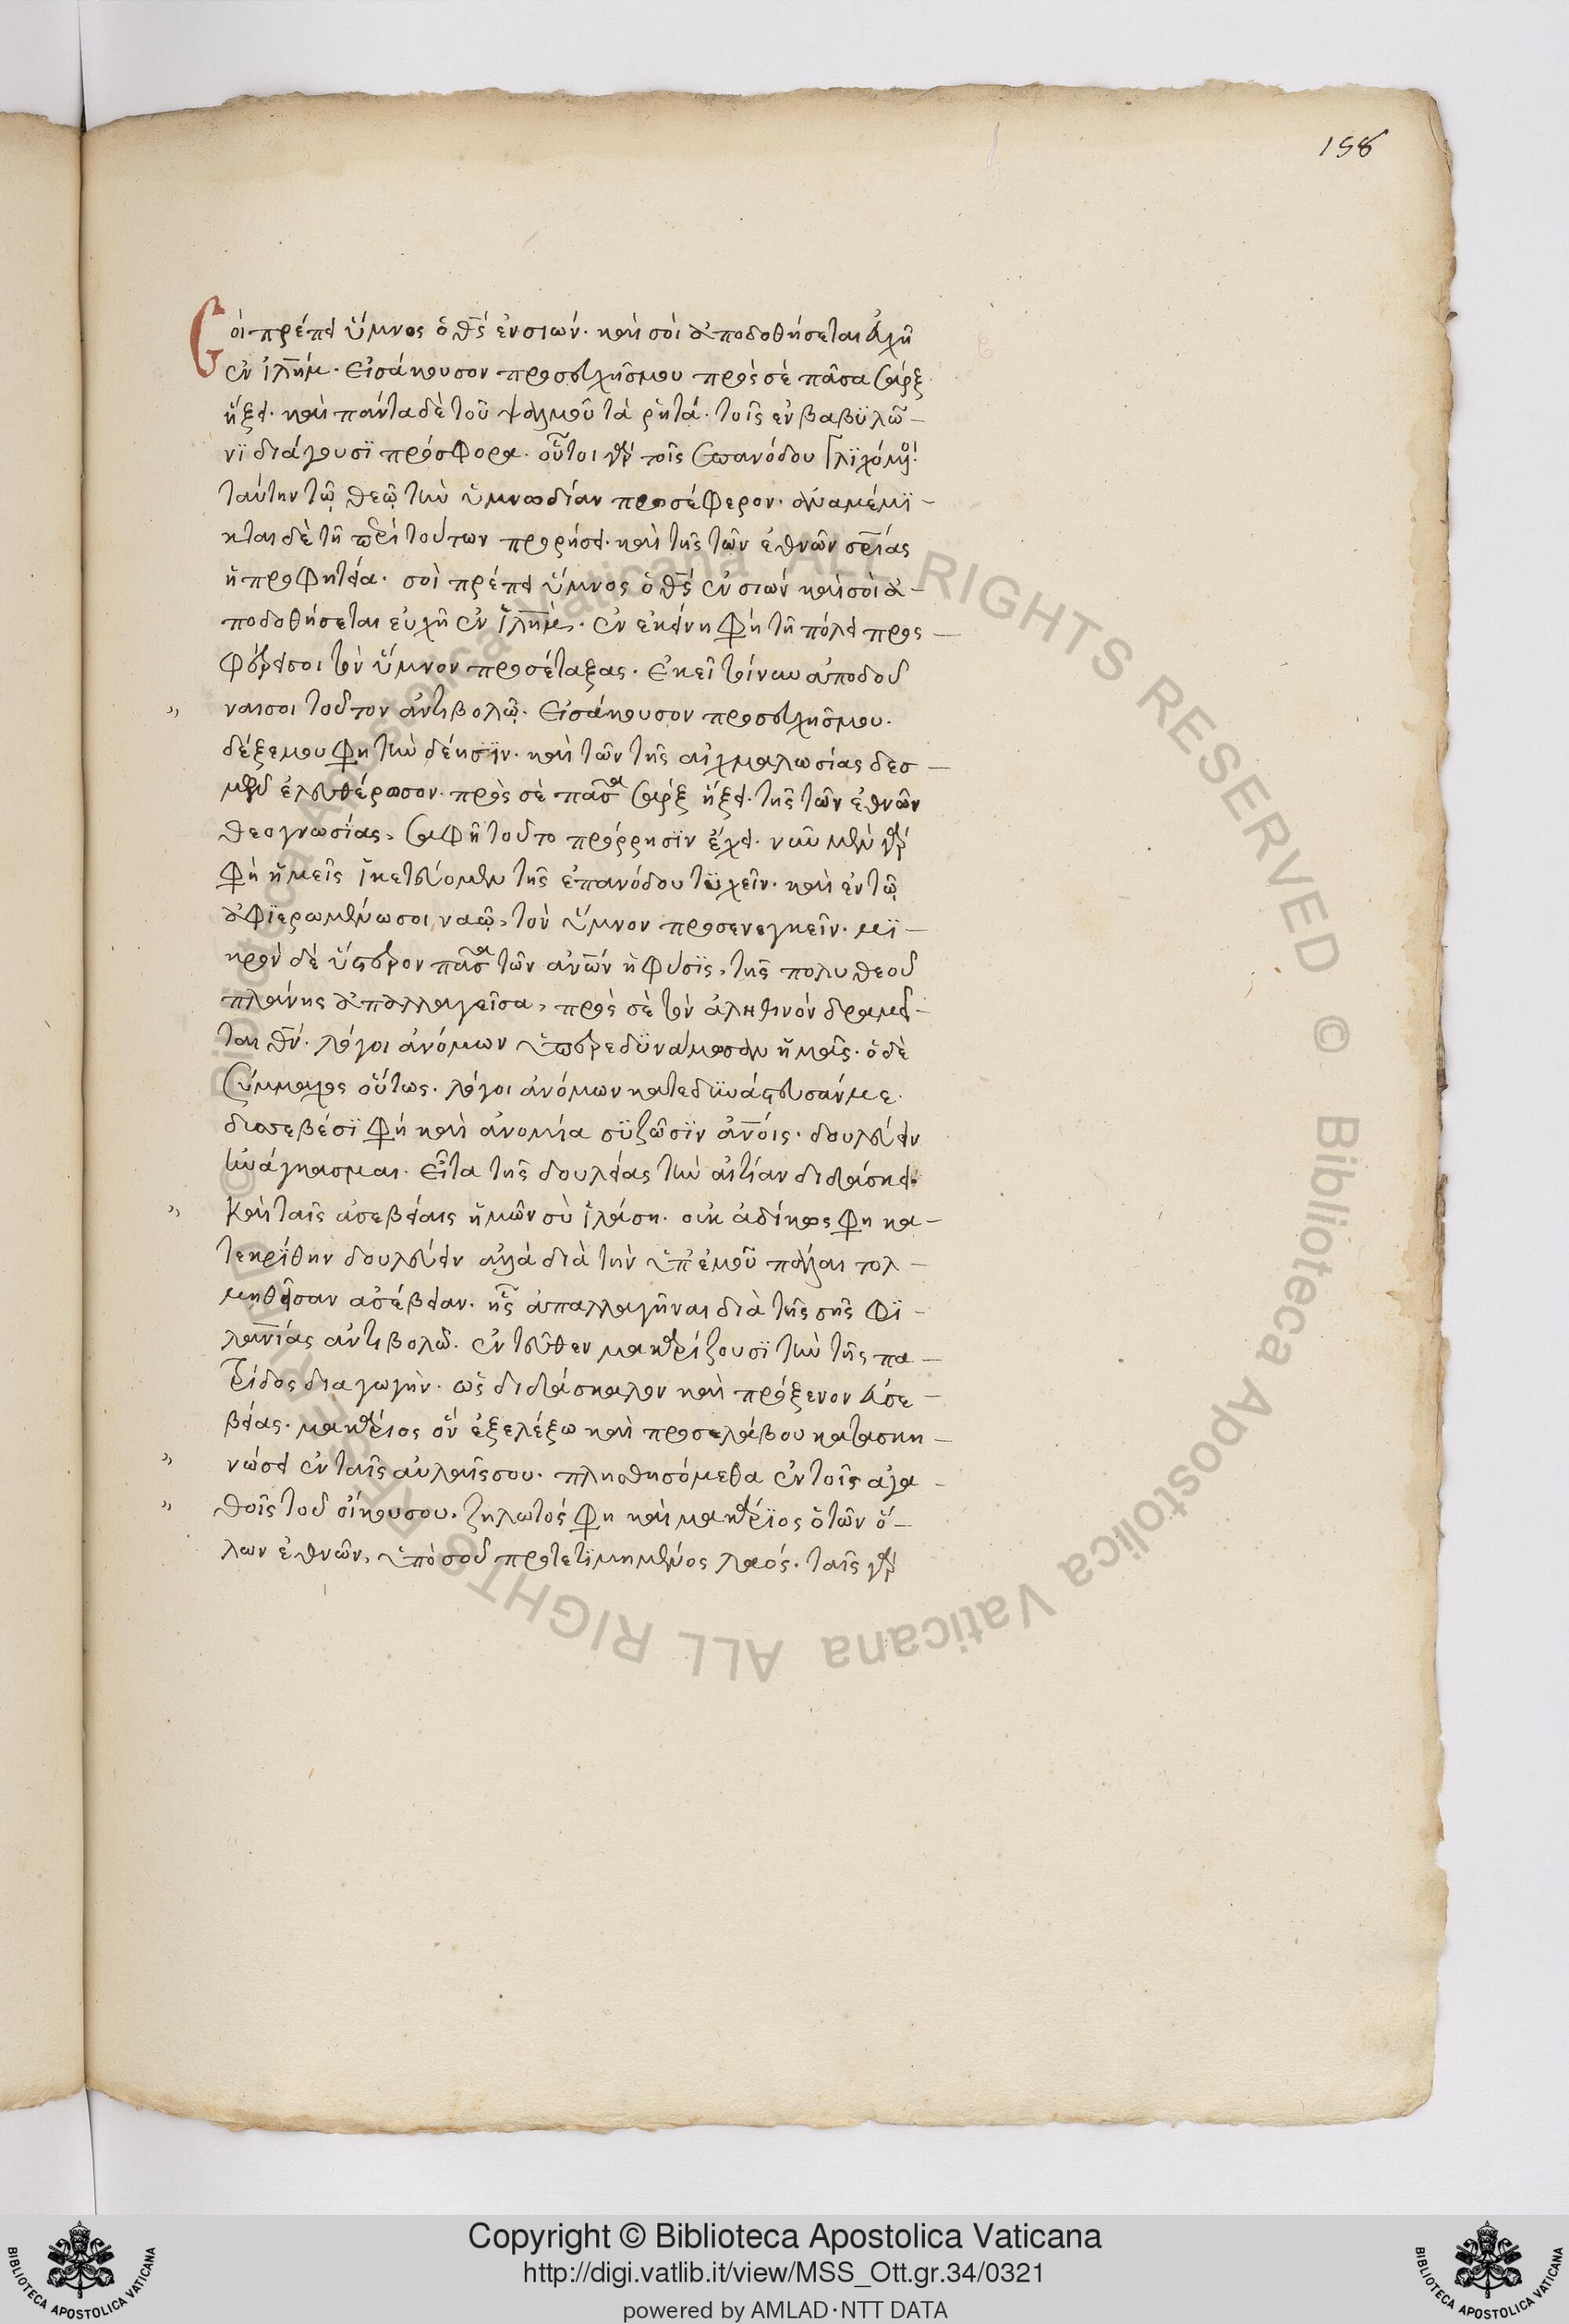 158
Σοὶ πρέπει ὕμνος ὁ θ̅ς̅ ἐν σιών· καὶ σοὶ ἀποδοθήσεται εὐχὴ
ἐν ἰλ̅η̅μ̅· Εἰσάκουσον προσευχῆς μου πρὸς σὲ πᾶσα σὰρξ
ἥξει· καὶ πάντα δὲ τοῦ ψαλμοῦ τὰ ῥητά· τοῖς ἐν βαβϋλῶ-
νϊ διάγουσϊ πρόσφορα· οὗτοι γὰρ τῆς ἐπανόδου
ταύτην τῷ θεῷ τὴν ὑμνωδίαν προσέφερον· ἀναμέμϊ-
κται δὲ τῆ περὶ τούτων προρήσει· καὶ τῆς τῶν ἐθνῶν σ̅ρ̅ίας
ἡ προφητεία· σοὶ πρέπει ὕμνος ὁ θ̅ς̅ ἐν σιών καὶ σοὶ ἀ-
ποδοθήσεται εὐχὴ ἐν ἰλ̅η̅μ̅· ἐν ἐκείνη φὴ τῆ πόλει προσ-
φέρειν σοι τὸν ὕμνον προσέταξας· Ἐκεῖ τοίνυν ἀποδοῦ
ναι σοι τοῦτον ἀντιβολῶ· Εἰσάκουσον προσευχῆς μου·
δέξε μου φη τὴν δέησϊν· καὶ τῶν τῆς αἰχμαλωσίας δεσ-
μῶν ἐλευθέρωσον· πρὸς σὲ πᾶσα σὰρξ ἥξει· τῆς τῶν ἐθνῶν
θεογνωσίας, σαφῆ τοῦτο πρόρρησϊν ἔχει· νῦν μὲν γὰρ
φὴ ἡμεῖς ἱκετεύομεν τῆς ἐπανόδου τϋχεῖν· καὶ ἐν τῷ
ἀφϊερωμένω σοι ναῷ, τὸν ὕμνον προσενεγκεῖν· μϊ-
κρὸν δὲ ὕστερον πᾶσα τῶν α̅ν̅ων ἡ φύσϊς, τῆς πολυθέου
πλάνης ἀπαλλαγεῖσα, πρὸς σὲ τὸν ἀληθινὸν δραμεῖ-
ται θ̅ν̅· λόγοι ἀνόμων ὑπερεδϋνάμωσαν ἡμᾶς· ὁ δὲ
Σύμμαχος οὕτως· λόγοι ἀνόμων κατεδϋνάστευσάν με·
δυσσεβέσϊ φὴ καὶ ἀνομία σϋζῶσϊν α̅ν̅οις· δουλεύειν
ἠνάγκασμαι· Εἶτα τῆς δουλείας τὴν αἰτίαν διδάσκει·
Καὶ ταῖς ἀσεβείαις ἡμῶν σὺ ἱλάση· οὐκ ἀδίκως φη κα-
τεκρίθην δουλεύειν ἀλλὰ διὰ τὴν ὑπ' ἐμοῦ πάλαι τολ-
μηθεῖσαν ἀσέβειαν· ἧς ἀπαλλαγῆναι διὰ τῆς σῆς φϊ-
λα̅ν̅ίας ἀντιβολῶ· ἐντεῦθεν μακαρίζουσϊ τὴν τῆς πα-
τρίδος διαγωγὴν· ὡς διδάσκαλον καὶ πρόξενον εὐσε-
βείας· μακάριος ὃν ἐξελέξω καὶ προσελάβου κατασκη-
νώσει ἐν ταῖς αὐλαῖς σου· πλησθησόμεθα ἐν τοῖς ἀγα-
θοῖς τοῦ οἴκου σου· ζηλωτός φη καὶ μακάρϊος ὁ τῶν ὅ-
λων ἐθνῶν, ὑπὸ σοῦ προτετϊμημένος λαός· ταῖς γὰρ
© Biblioteca Apostolica Vaticana ALL RIGHTS RESERVED © Biblioteca Apostolica Vaticana ALL RIGHTS RESERVED
BIBLIOTECA APOSTOLICA VATICANA
Copyright © Biblioteca Apostolica Vaticana
http://digi.vatlib.it/view/MSS_Ott.gr.34/0321
powered by AMLAD·NTT DATA
BIBLIOTECA APOSTOLICA VATICANA